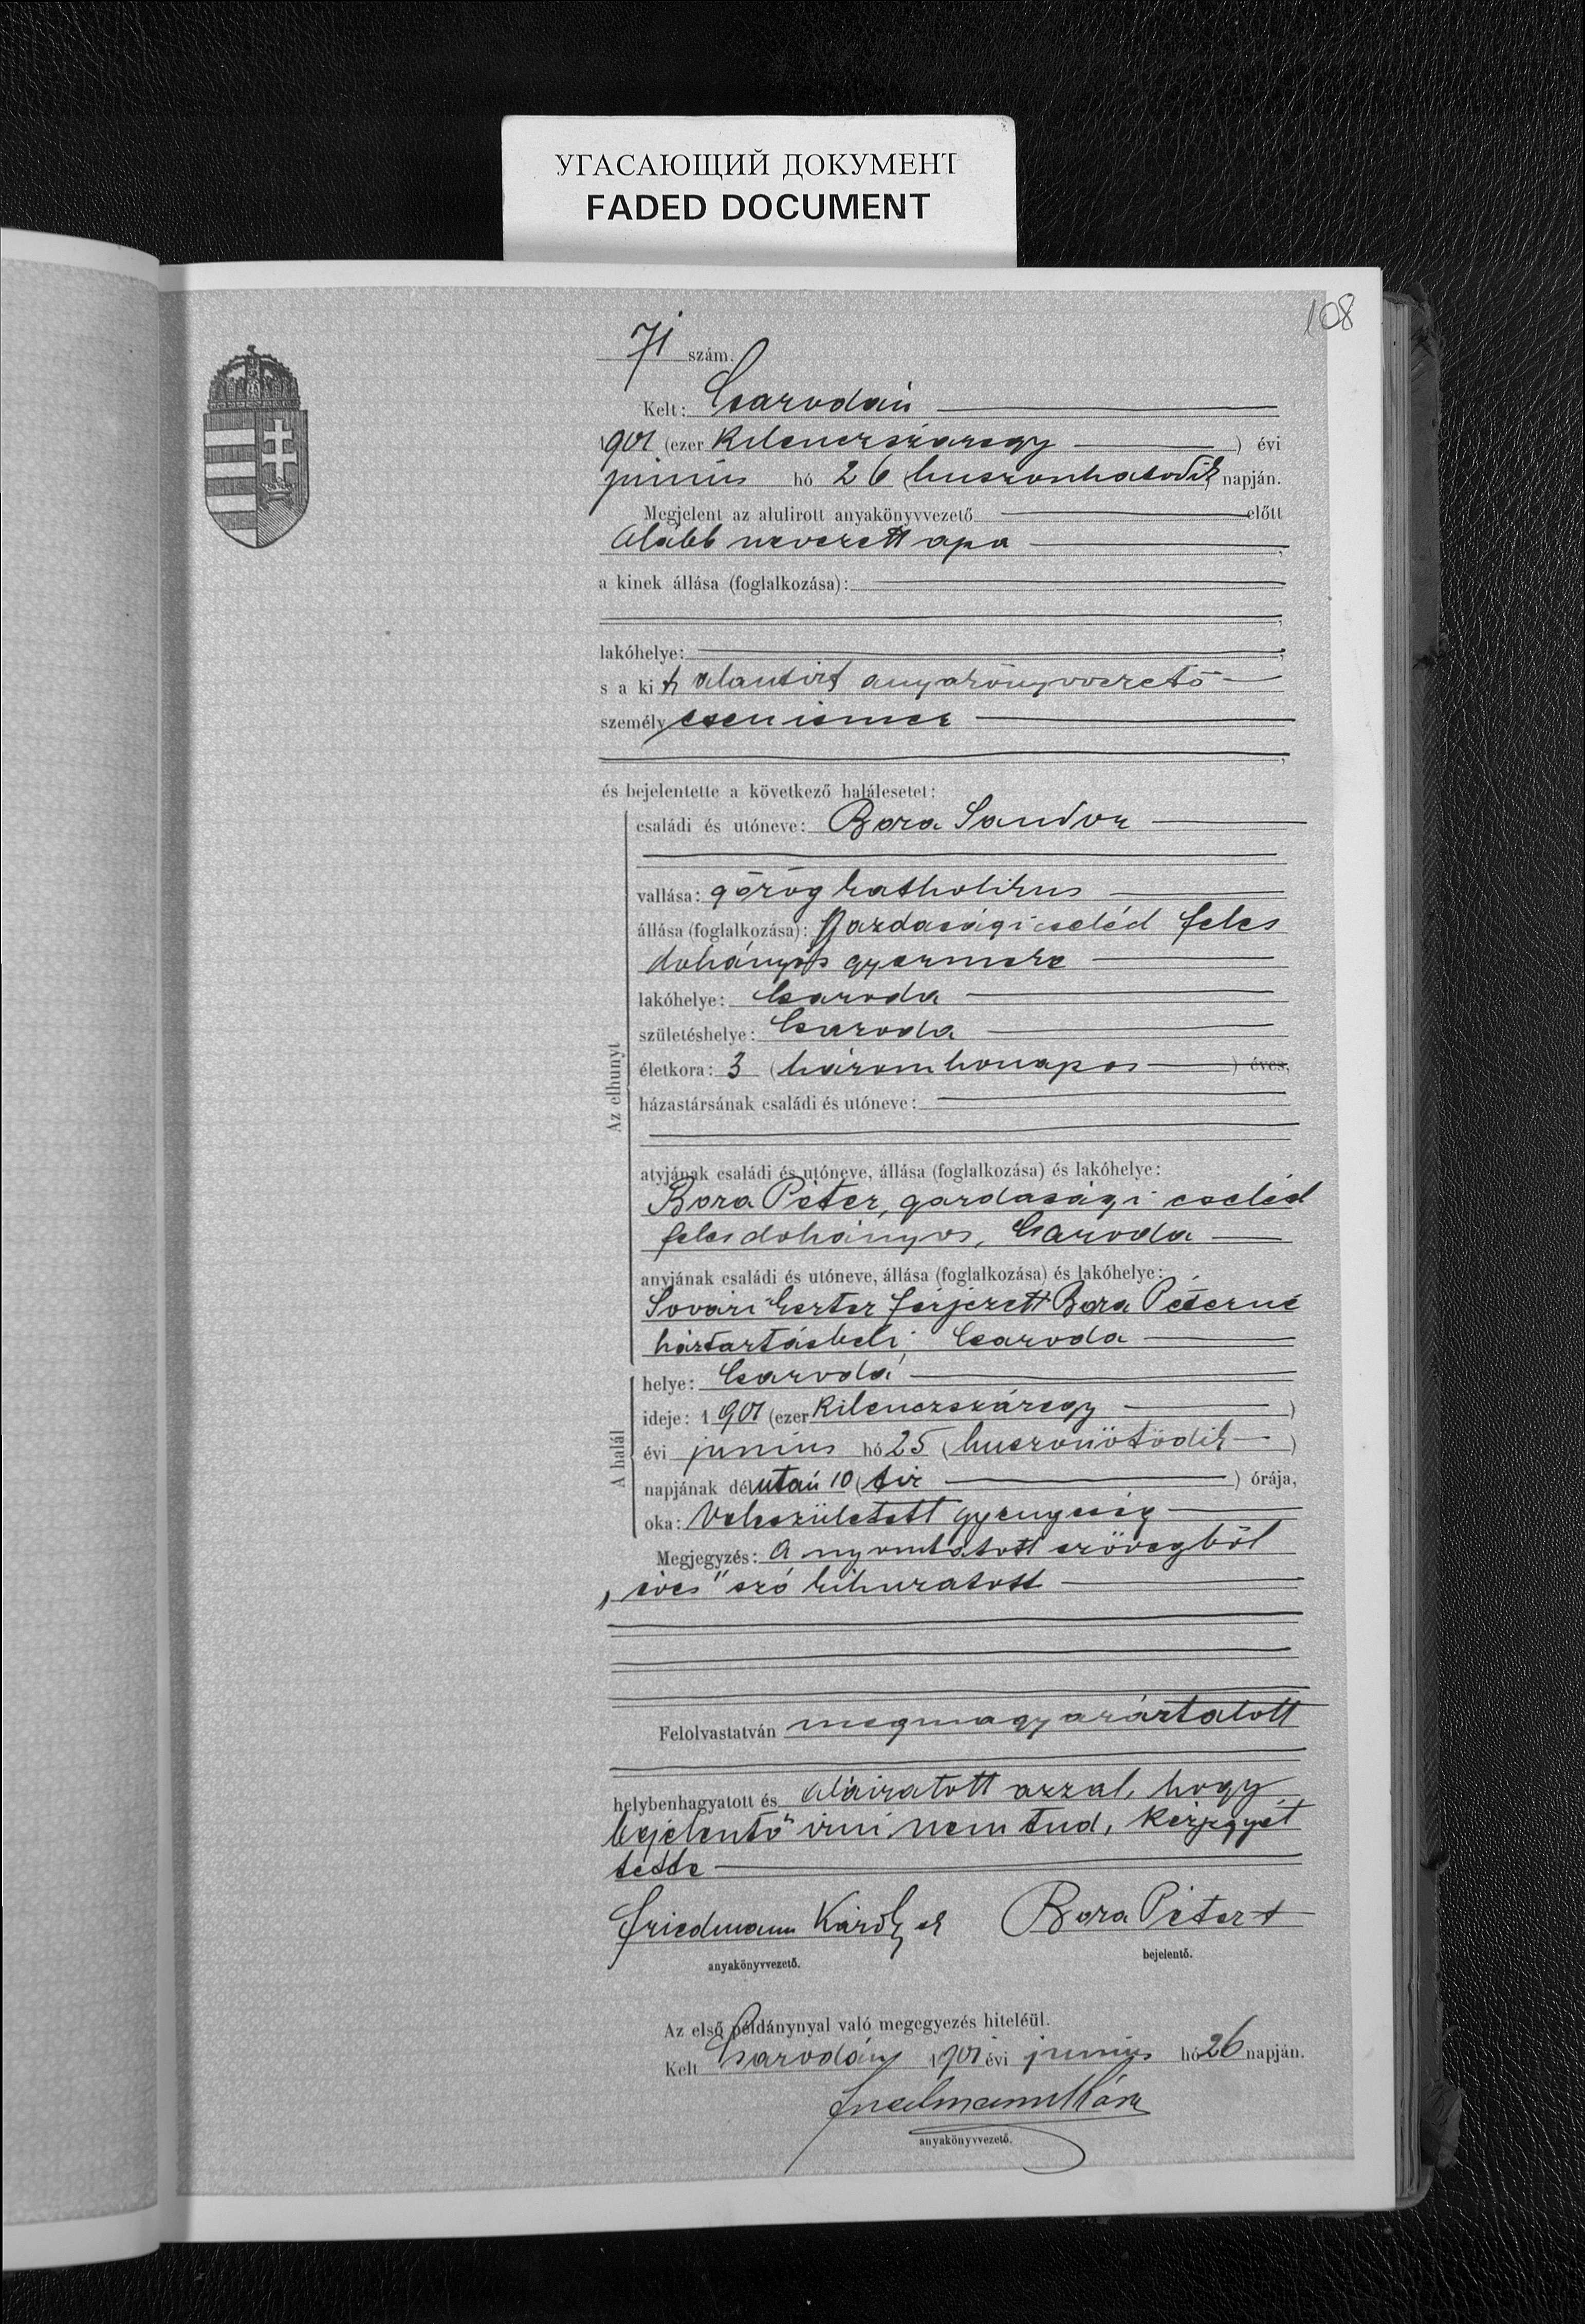 УГАСАЮЩИЙ ДОКУМЕНТ
FADED DOCUMENT
108
71 szám.
Kelt: Csarodán
1901 (ezer kilenczszázegy) évi
junius hó 26 (huszonhatodik) napján.
Megjelent az alulirott anyakönyvvezető előtt
alább nevezett apa,
a kinek állása (foglalkozása):
lakóhelye:
s a kit alantirt anyakönyvvezető
személyesen ismer
és bejelentette a következő halálesetet:
Az elhunyt
családi és utóneve: Bora Sandor
vallása: görög katholikus
állása (foglalkozása): gazdasági cseléd feles
dohányos gyermeke
lakóhelye: Csaroda
születéshelye: Csaroda
életkora: 3 (három honapos) éves,
házastársának családi és utóneve:
atyjának családi és utóneve, állása (foglalkozása) és lakóhelye:
Bora Péter, gazdasági cseléd
feles dohányos, Csaroda
anyjának családi és utóneve, állása (foglalkozása) és lakóhelye:
Sovári Eszter férjezett Bora Péterné
háztartásbeli, Csaroda
A halál
helye: Csaroda
ideje: 1901 (ezer kilenczszázegy)
évi junius hó 25 (huszonötödik)
napjának délután 10 (tiz) órája,
oka: Veleszületett gyengeség
Megjegyzés: A nyomtatott szövegből
„éves" szó kihuzatott
Felolvastatván megmagyaráztatott
helybenhagyatott és aláiratott azzal, hogy
bejelentő irni nem tud, kézjegyét
tette
Friedmann Károly sk Bora Péter +
anyakönyvvezető. bejelentő.
Az első példánynyal való megegyezés hiteléül.
Kelt Csarodán 1901 évi junius hó 26 napján.
anyakönyvvezető.